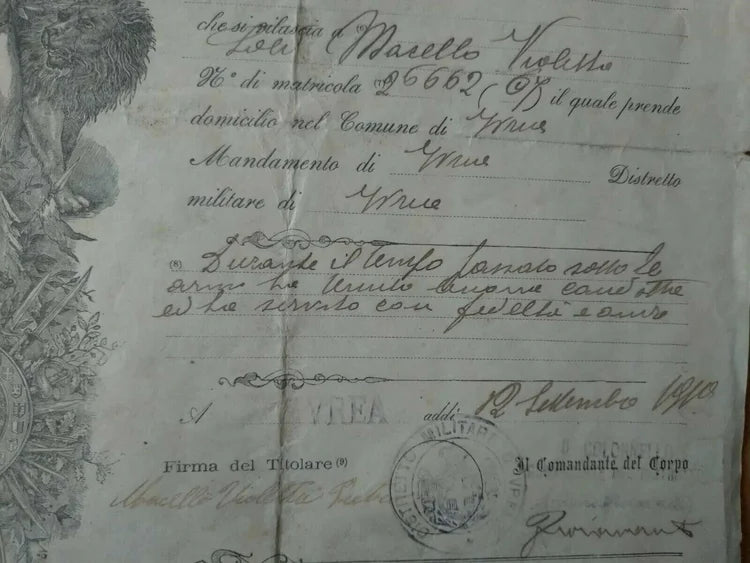 che si rilascia a
Macello Violetta
N° di matricola 26662 (67) il quale prende
domicilio nel Comune di Ivrea
Mandamento di Ivrea Distretto
militare di Ivrea
(8) Durante il tempo passato sotto le
armi ha tenuto buona condotta
ed ha servito con fedeltà e onore
A IVREA addì 12 Settembre 1910
DISTRETTO MILITARE IVREA
Firma del Titolare (9) Il Comandante del Corpo
Macello Violetta